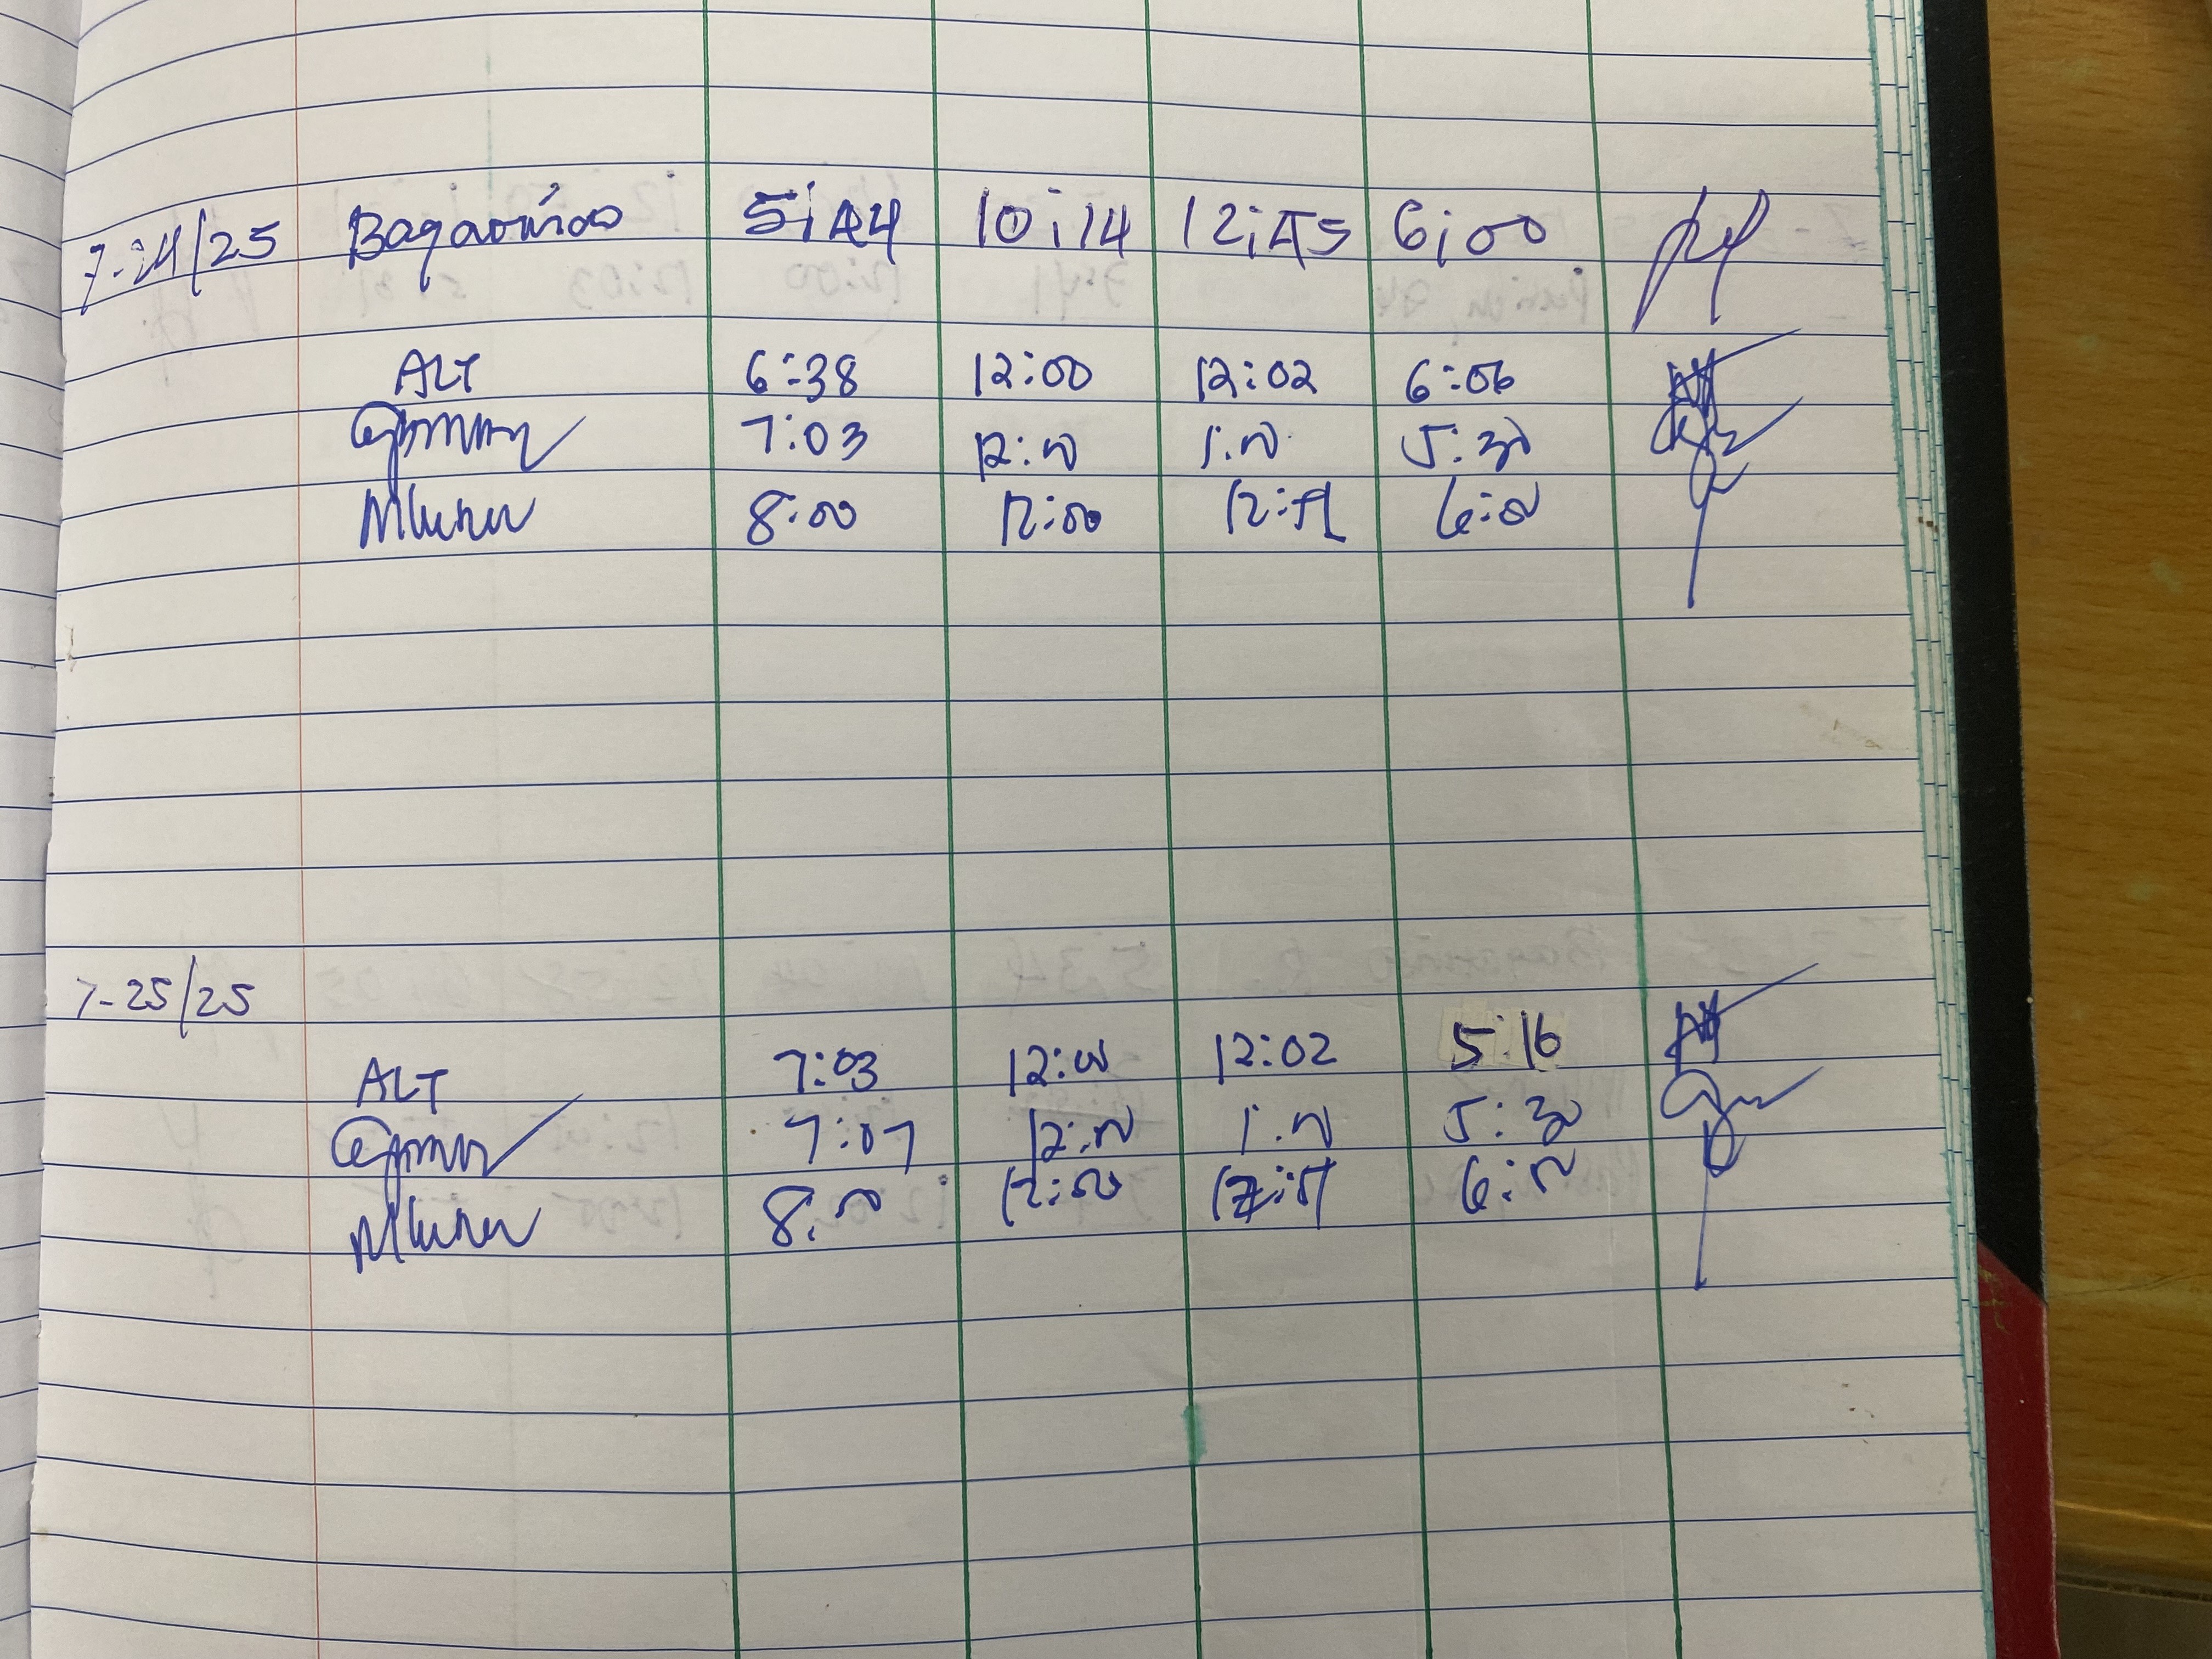 7-24/25 5:44 10:14 12:45 6:00
ALT 6:38 12:00 12:02 6:06
7:03 12:00 1:00 5:30
8:00 12:00 6:00
7-25/25
ALT 7:03 12:00 12:02 5:16
7:07 12:00 1:00 5:30
8:00 12:00 6:00